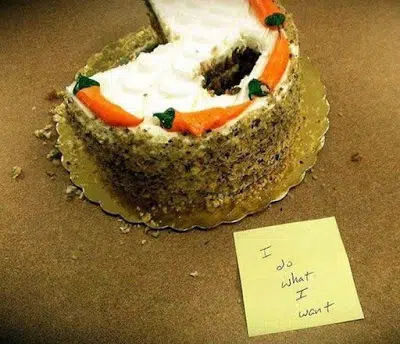 I
do
what
I
want